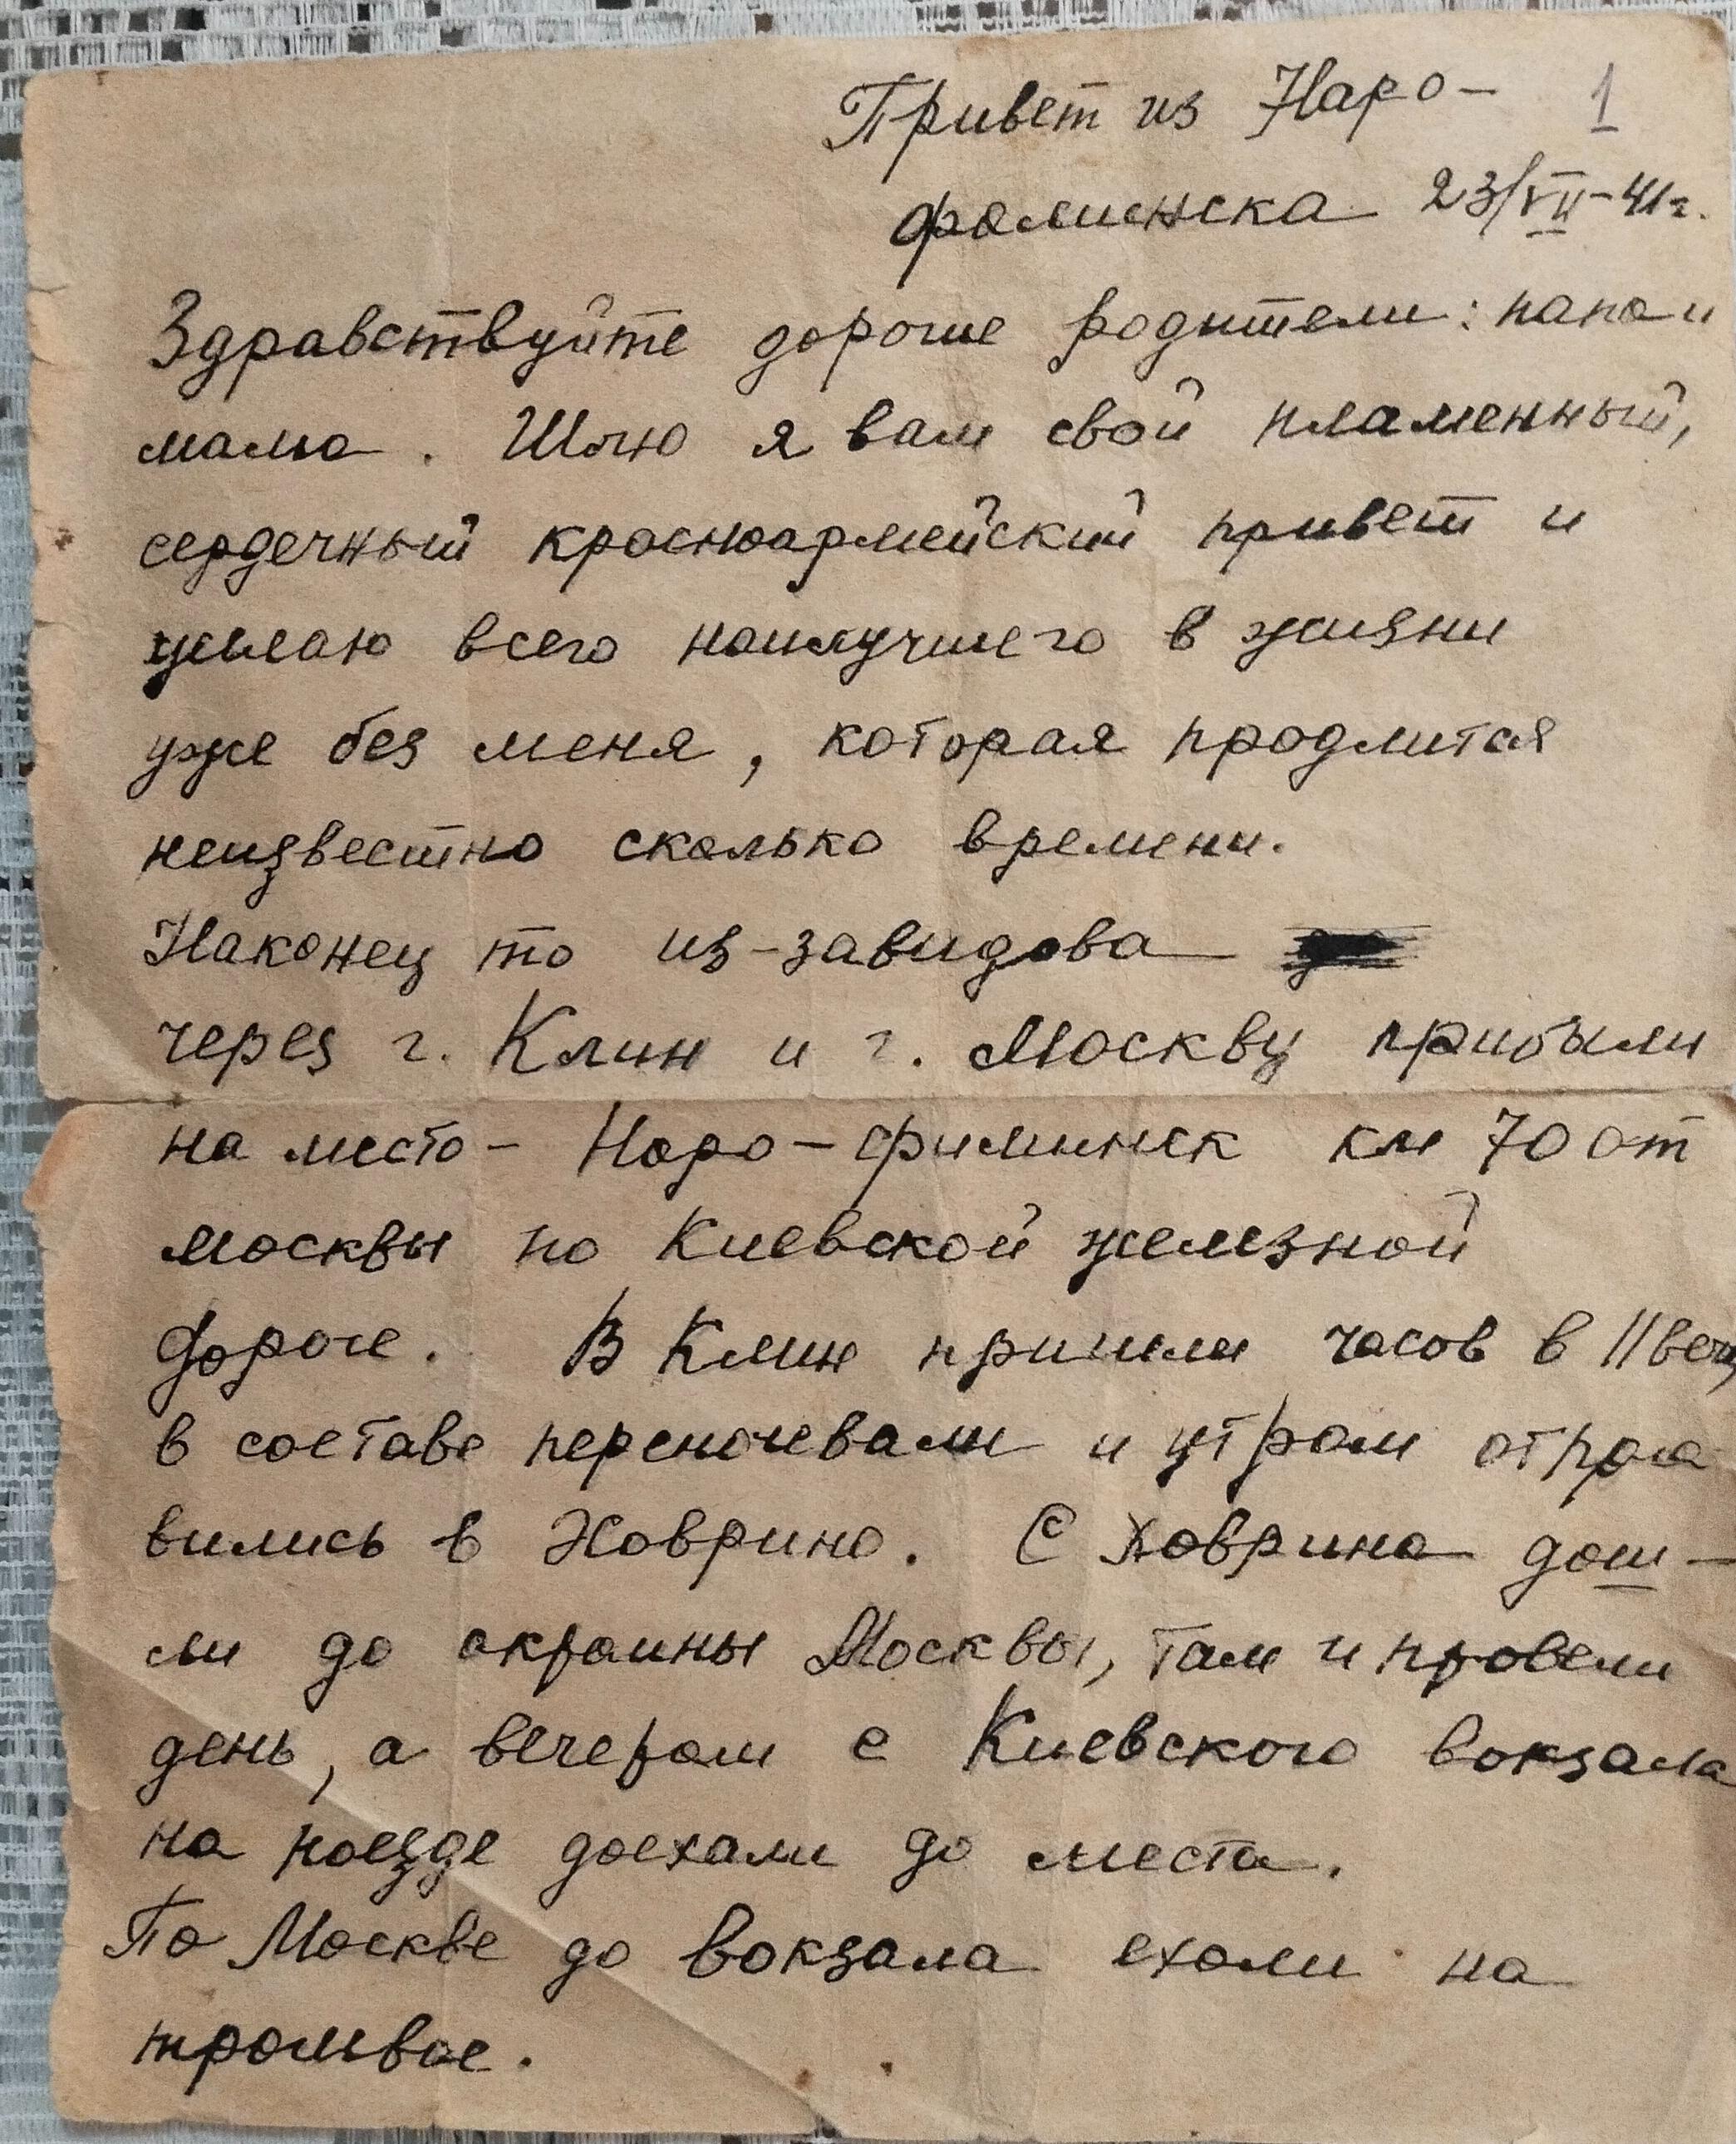 Привет из Наро- 1
фоминска 23/VII-41г.
Здравствуйте дорогие родители: папа и
мама. Шлю я вам свой пламенный,
сердечный красноармейский привет и
желаю всего наилучшего в жизни
уже без меня, которая продлится
неизвестно сколько времени.
Наконец то из-завидова
через г. Клин и г. Москву прибыли
на место- Наро-фиминск км 70 от
москвы по Киевской железной
дороге. В Клин пришли часов в 11 веч,
в составе переночевали и утром отпра
вились в Ховрино. С Ховрина дош-
ли до окраины Москвы, там и провели
день, а вечером с Киевского вокзала
на поезде доехали до места.
По Москве до вокзала ехали на
трамвае.